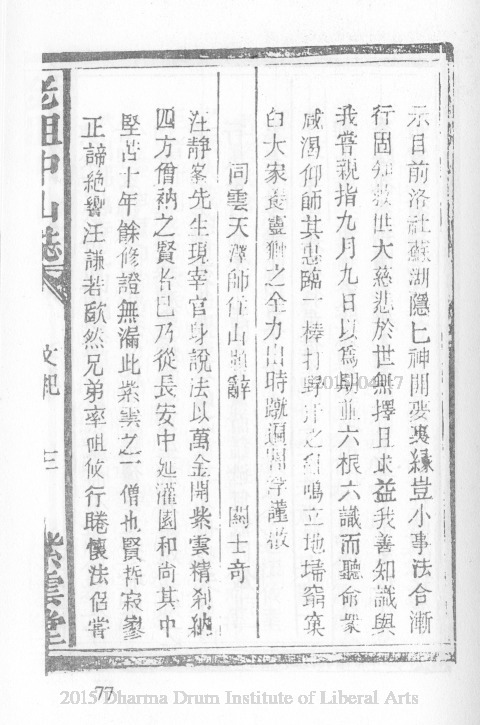 示目前洛社蘇湖隱匕神開
緣豈小事法合漸
行固知救世大慈悲於世無擇且求益我善知識與
我嘗親指九月九日以為期並六根六識而聽命眾
咸渴仰師其惠臨一棒打野干之亂鳴立地埽窮窠
白大家 靈獅之全力出時蹴 謹啟
同雲天澤師住山題辭 闕士奇
汪靜峯先生現宰官身說法以萬金開紫雲精剎納
四方僧衲之賢者已乃從長安中延灌園和尚其中
堅苦十年餘修證無漏此紫雲之一僧也賢哲寂寥
正諦絶響汪謙若歐然兄弟率咀攸行睠懷法侶嘗
老祖中山誌
文紀
紫雲堂
77
2015 Dharma Drum Institute of Liberal Arts